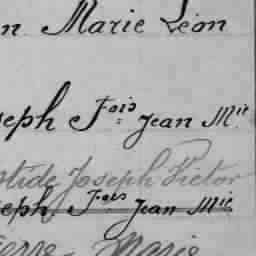 n Marie Léon
seph Fois Jean Mie
tide Joseph Victor
seph, Fois Jean Mie
ierre Marie